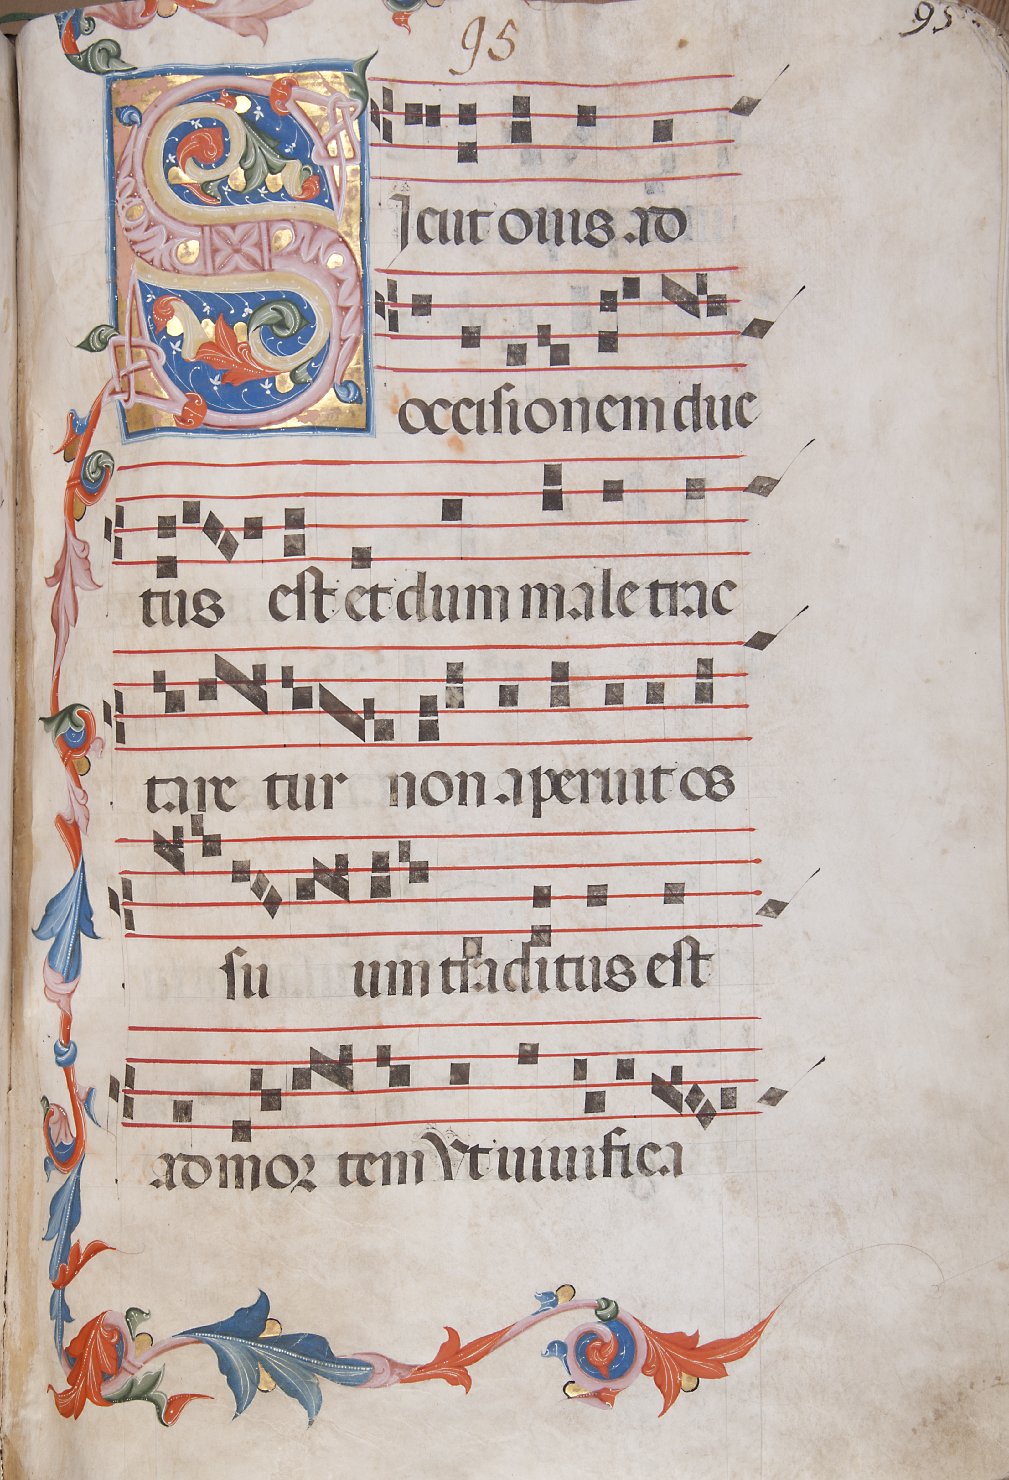 95
95
Sicut ouis ad
occisionem duc
tus est et dum male trac
tare tur non aperuit os
su um traditus est
ad mor tem Vt uiuifica